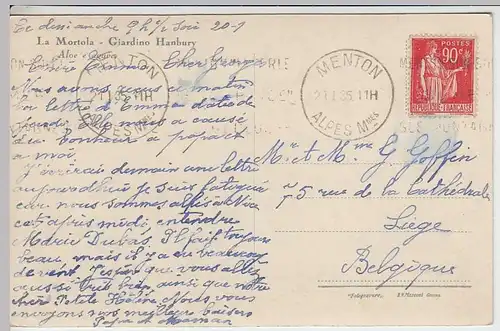 Ce dimanche 9 h 1/2 soir 20-1
La Mortola - Giardino Hanbury
Aloe e Cypres
Chère Emma Cher Germain
Nous avons reçu ce matin
la lettre d'Emma datée de
jeudi. Elle nous a causé
du bonheur à papa et
à moi
J'écrirai demain une lettre
aujourd'hui je suis fatiguée
car nous sommes allés à Nice
cet après midi, entendre
Marie Dubas. Il fait toujours
beau, mais il y a eu beaucoup
de vent. J'espère que vous allez
aussi très bien, ainsi que notre
cher Petite Hélène. Nous vous
envoyons nos meilleurs baisers
Papa et Maman
MENTON
ALPES Mmes
MENTON
21 1 35 11H
ALPES Mmes
POSTES
90c
REPUBLIQUE FRANÇAISE
Mr et Mme G Goffin
75 rue de la Cathédrale
Liège
Belgique